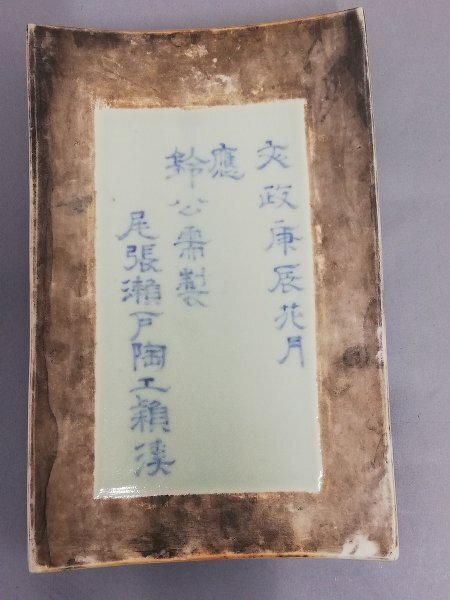 文政庚辰花月
應
鈴公需製
尾張瀬戸陶工穎溪